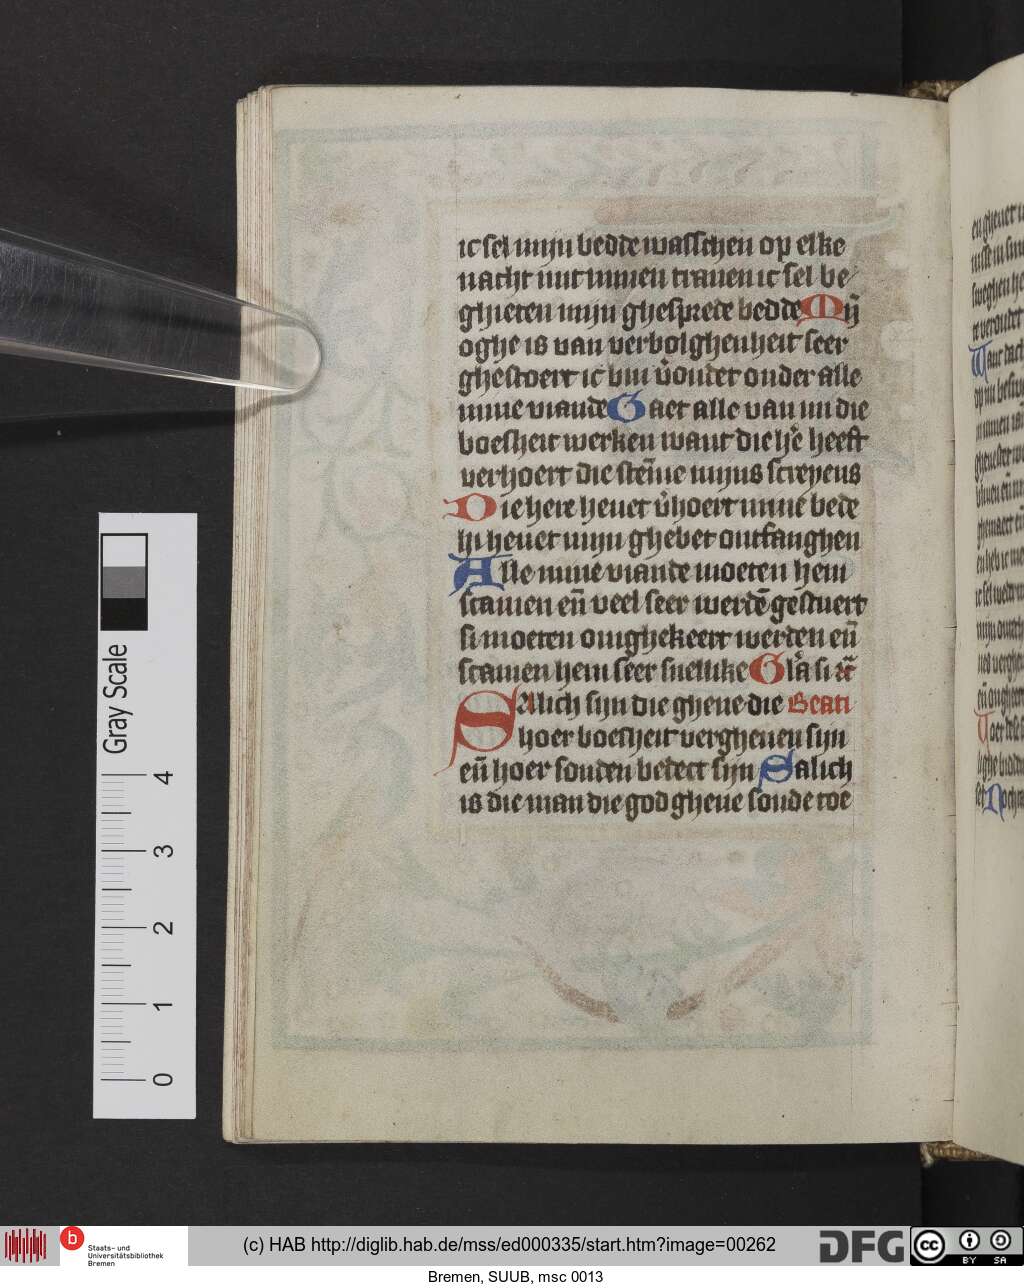 ic sel mijn bedde wasschen op elke
nacht mit minen tranen ic sel be
ghieten mijn ghesprede bedde Mȳ
oghe is van verbolghenheit seer
ghestoert ic bin v̄oudet onder alle
mine viande Gaet alle van mi die
boesheit werken want die h̄e heeft
verhoert die stem̄e mijns screyens
Die here hevet v̄hoert mine bede
hi hevet mijn ghebet ontfanghen
Alle mine viande moeten hem
scamen eñ veel seer werdē gestuert
si moeten omghekeert werden eñ
scamen hem seer snellike Gl̄a si
Salich sijn die ghene die Beati
hoer boesheit vergheven sijn
eñ hoer sonden bedect sijn Salich
is die man die god ghene sonde toē
Gray Scale
4
3
2
1
0
b
Staats- und
Universitätsbibliothek
Bremen
(c) HAB http://diglib.hab.de/mss/ed000335/start.htm?image=00262
DFG
cc BY SA
Bremen, SUUB, msc 0013